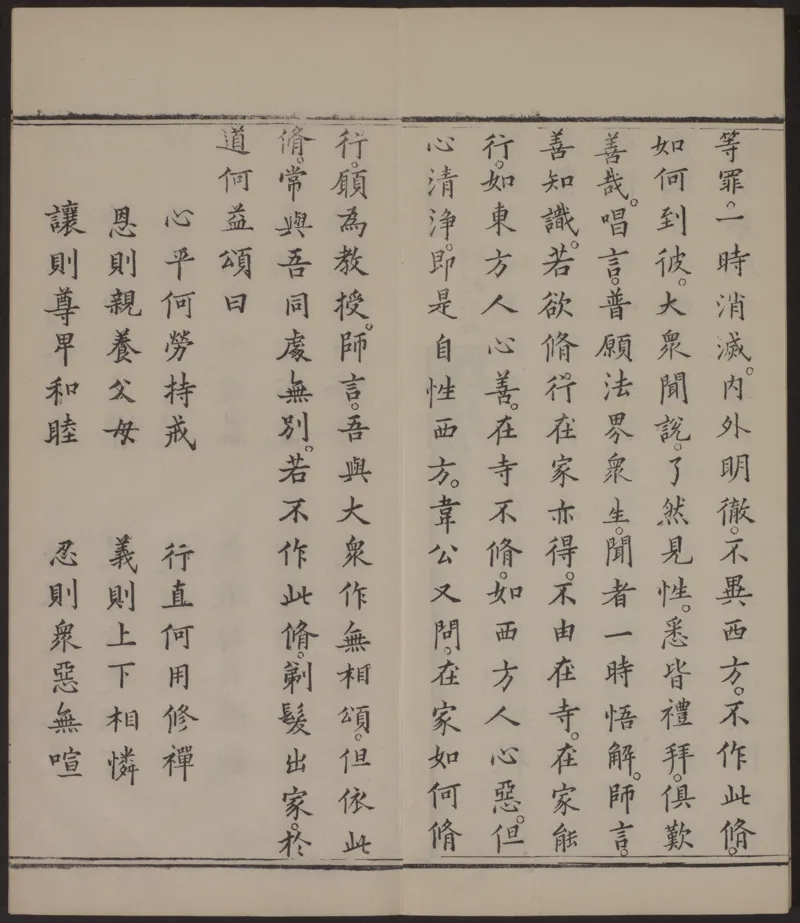 等罪。一時消滅。內外明徹。不異西方。不作此脩。
如何到彼。大衆聞說。了然見性。悉皆禮拜。俱歎
善哉。唱言。普願法界衆生。聞者一時悟解。師言。
善知識。若欲脩行。在家亦得。不由在寺。在家能
行。如東方人心善。在寺不脩。如西方人心惡。但
心清淨。即是自性西方。韋公又問。在家如何脩
行。願為教授。師言。吾與大衆作無相頌。但依此
脩。常與吾同處無別。若不作此脩。剃髮出家。於
道何益頌曰
心平何勞持戒　行直何用修禪
恩則親養父母　義則上下相憐
讓則尊卑和睦　忍則衆惡無喧